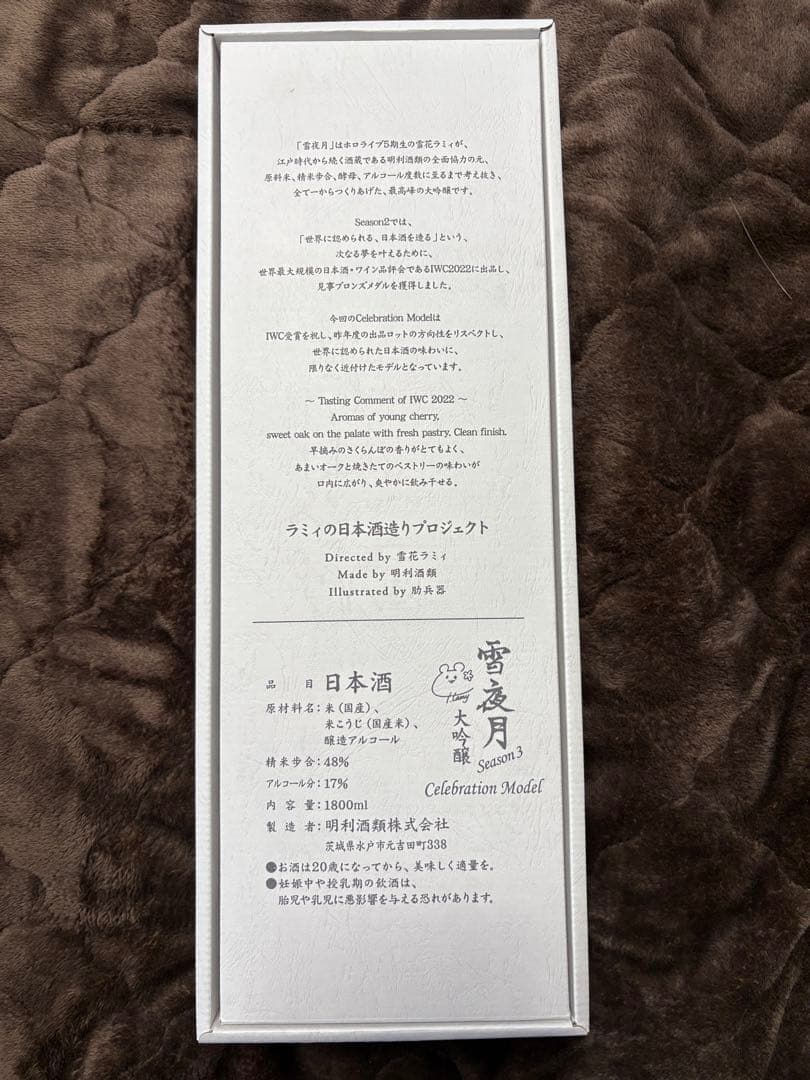 「雪夜月」はホロライブ5期生の雪花ラミィが、
江戸時代から続く酒蔵である明利酒類の全面協力の元、
原料米、精米歩合、酵母、アルコール度数に至るまで考え抜き、
全て一からつくりあげた、最高峰の大吟醸です。
Season2では、
「世界に認められる、日本酒を造る」という、
次なる夢を叶えるために、
世界最大規模の日本酒・ワイン品評会であるIWC2022に出品し、
見事ブロンズメダルを獲得しました。
今回のCelebration Modelは
IWC受賞を祝し、昨年度の出品ロットの方向性をリスペクトし、
世界に認められた日本酒の味わいに、
限りなく近付けたモデルとなっています。
～ Tasting Comment of IWC 2022 ～
Aromas of young cherry,
sweet oak on the palate with fresh pastry. Clean finish.
早摘みのさくらんぼの香りがとてもよく、
あまいオークと焼きたてのペストリーの味わいが
口内に広がり、爽やかに飲み干せる。
ラミィの日本酒造りプロジェクト
Directed by 雪花ラミィ
Made by 明利酒類
Illustrated by 肋兵器
品 目 日本酒
原材料名：米（国産）、
米こうじ（国産米）、
醸造アルコール
精米歩合：48%
アルコール分：17%
内 容 量：1800ml
製 造 者：明利酒類株式会社
茨城県水戸市元吉田町338
●お酒は20歳になってから、美味しく適量を。
●妊娠中や授乳期の飲酒は、
胎児や乳児に悪影響を与える恐れがあります。
雪夜月
大吟醸
Season3
Celebration Model